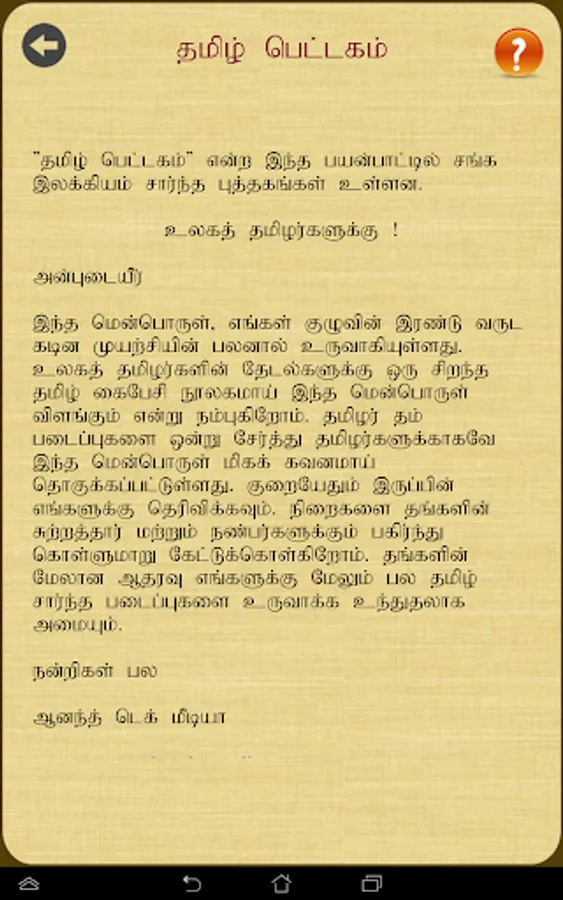 தமிழ் பெட்டகம்
?
"தமிழ் பெட்டகம்" என்ற இந்த பயன்பாட்டில் சங்க
இலக்கியம் சார்ந்த புத்தகங்கள் உள்ளன.
உலகத் தமிழர்களுக்கு !
அன்புடையீர்
இந்த மென்பொருள், எங்கள் குழுவின் இரண்டு வருட
கடின முயற்சியின் பலனால் உருவாகியுள்ளது.
உலகத் தமிழர்களின் தேடல்களுக்கு ஒரு சிறந்த
தமிழ் கைபேசி நூலகமாய் இந்த மென்பொருள்
விளங்கும் என்று நம்புகிறோம். தமிழர் தம்
படைப்புகளை ஒன்று சேர்த்து தமிழர்களுக்காகவே
இந்த மென்பொருள் மிகக் கவனமாய்
தொகுக்கப்பட்டுள்ளது. குறையேதும் இருப்பின்
எங்களுக்கு தெரிவிக்கவும். நிறைகளை தங்களின்
சுற்றத்தார் மற்றும் நண்பர்களுக்கும் பகிர்ந்து
கொள்ளுமாறு கேட்டுக்கொள்கிறோம். தங்களின்
மேலான ஆதரவு எங்களுக்கு மேலும் பல தமிழ்
சார்ந்த படைப்புகளை உருவாக்க உந்துதலாக
அமையும்.
நன்றிகள் பல
ஆனந்த் டெக் மீடியா